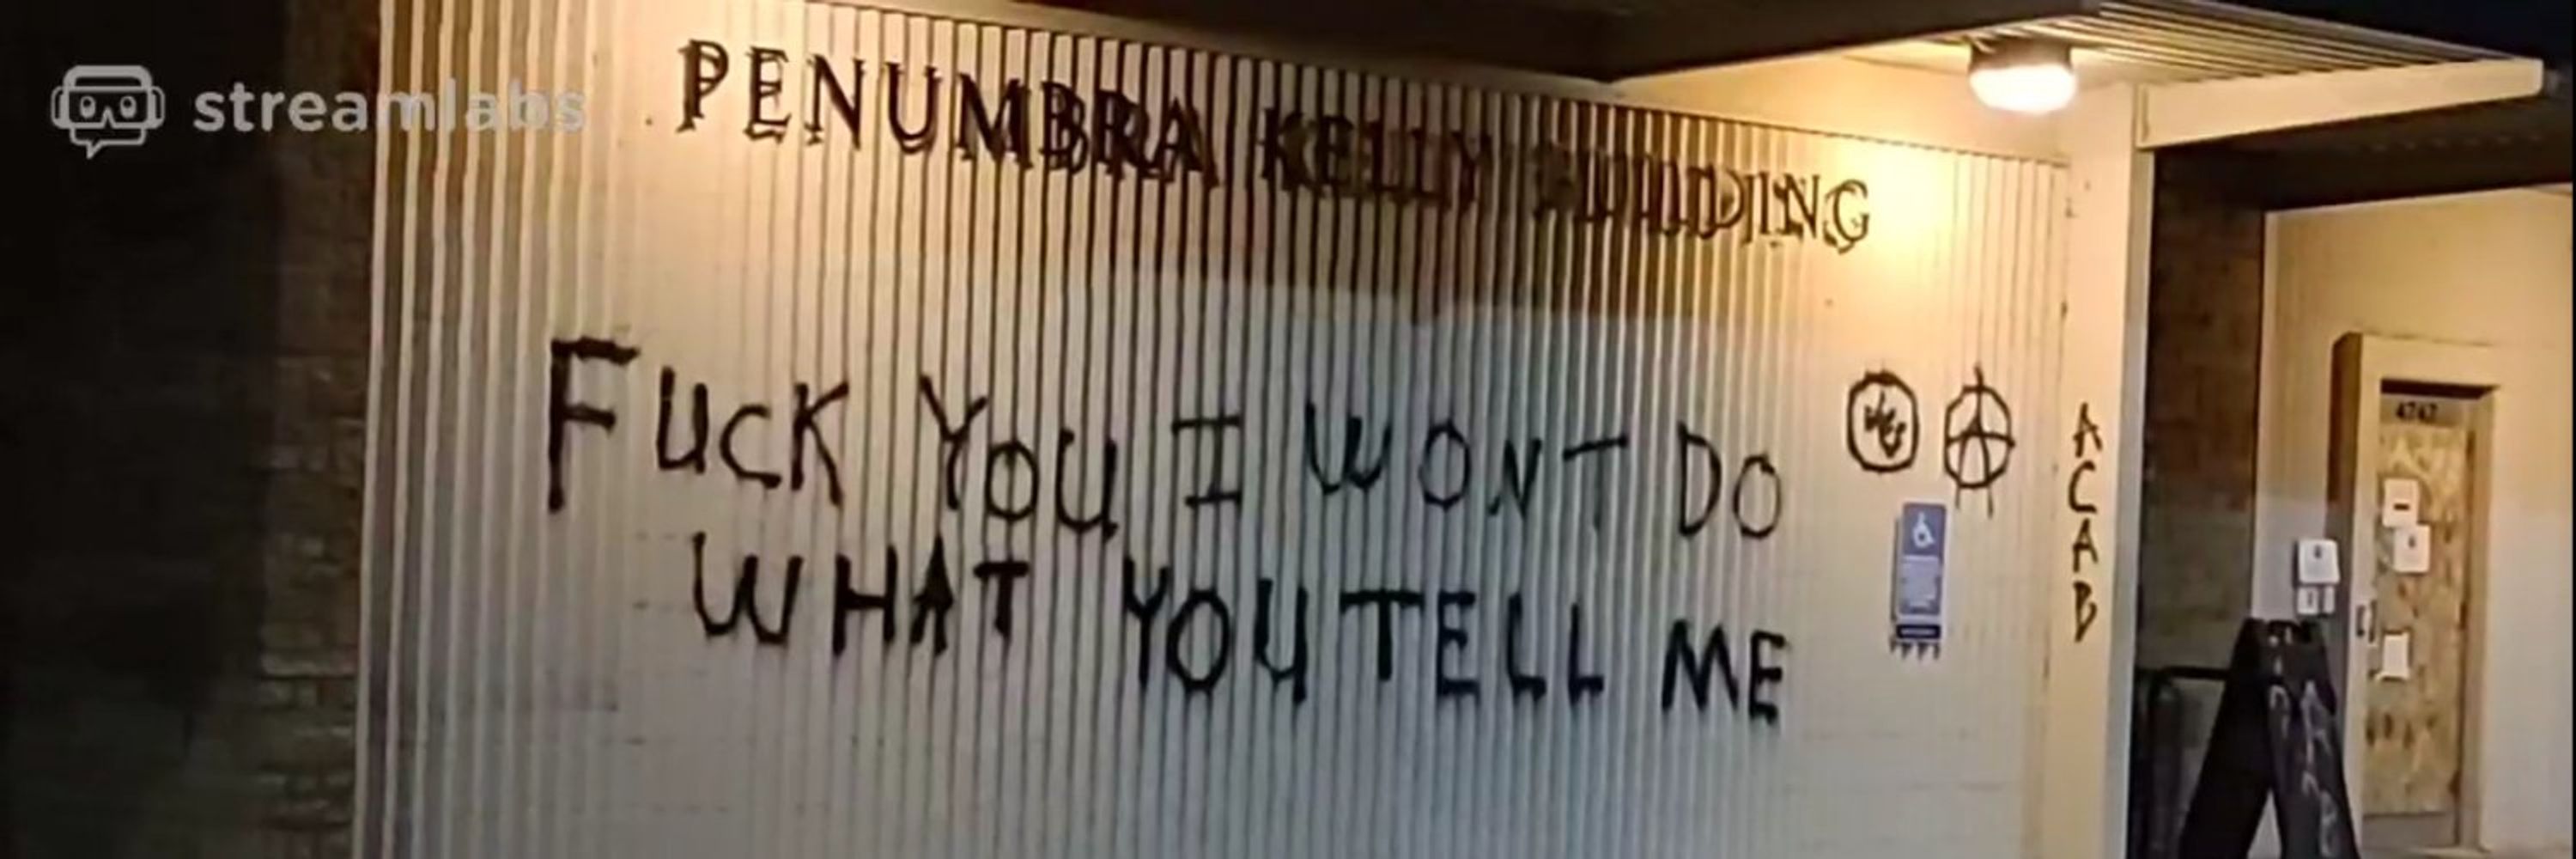 streamlabs
PENUMBRA KELLY BUILDING
FUCK YOU I WONT DO
WHAT YOU TELL ME
A
ACAB
4747